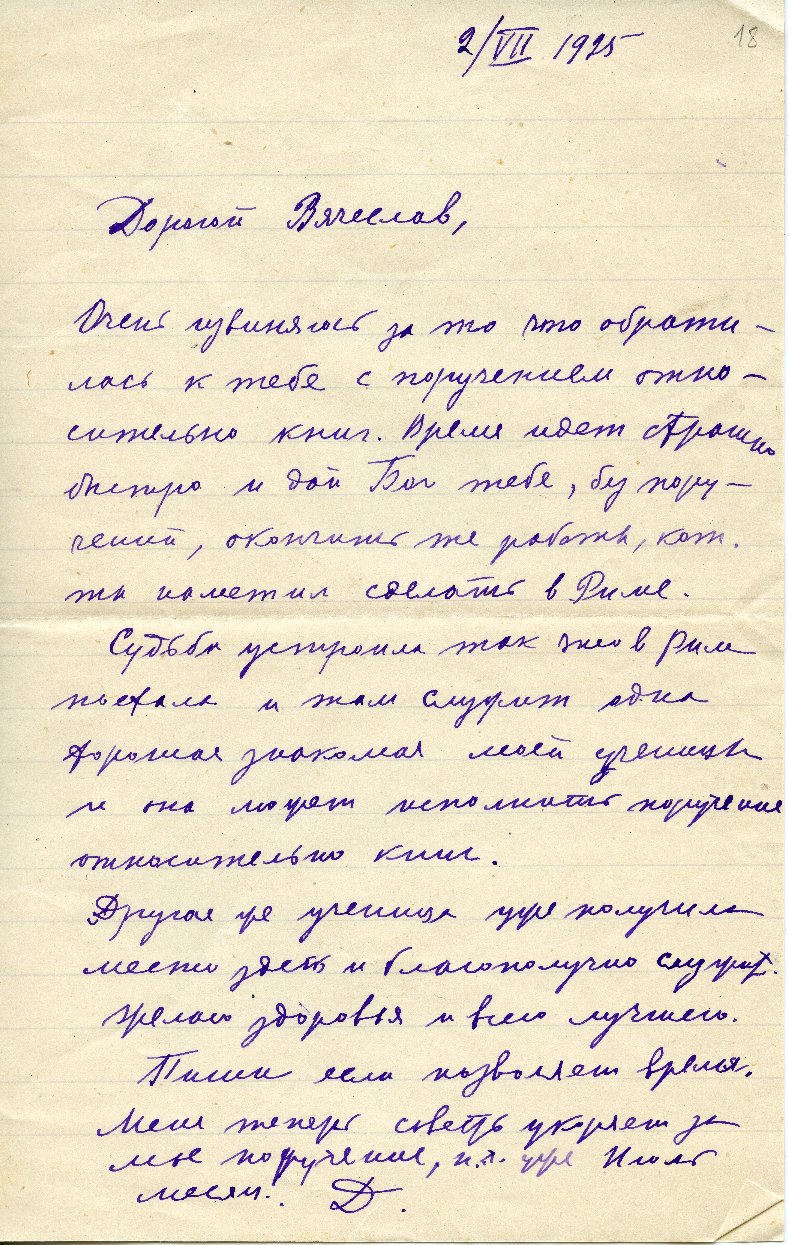 18
2/VII 1925
Дорогой Вячеслав,
Очень извиняюсь за то что обрати-
лась к тебе с поручением отно-
сительно книг. Время идет страшно
быстро и дай Бог тебе, без пору-
чений, окончить же работы, кот.
ты наметил сделать в Риме.
Судьба устроила так что в Рим
поехала и там служит одна
хорошая знакомая моей ученицы
и она может исполнить поручение
относительно книг.
Другая же ученица уже получила
место здесь и благополучно служит.
Желаю здоровья и всего лучшего.
Пиши если позволяет время.
Меня теперь совесть укоряет за
мое поручение, п.ч. уже Июль
месяц. Д.